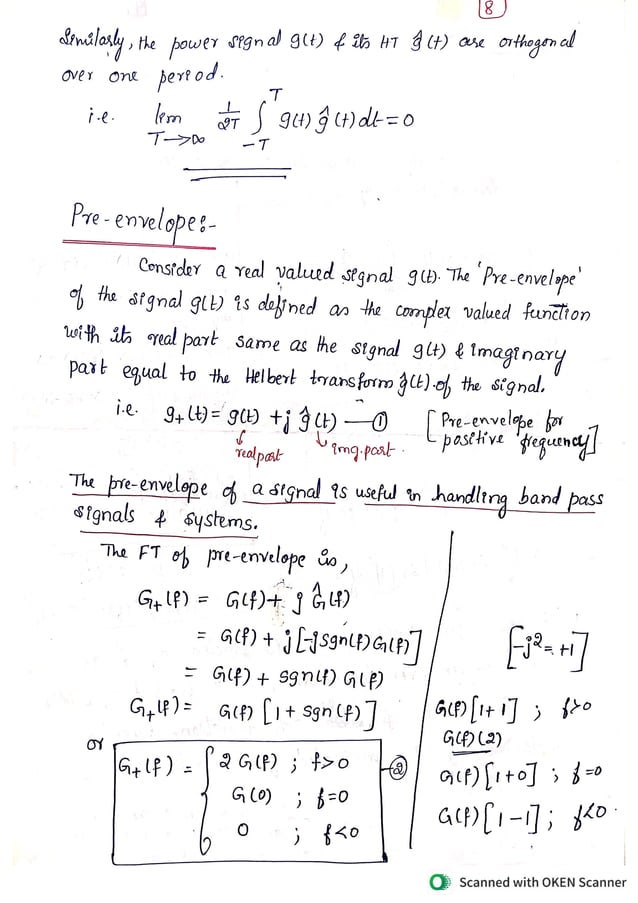 8
Similarly, the power signal g(t) & its HT ĝ(t) are orthogonal
over one period.
i.e. lim T→∞ 1/2T ∫_{-T}^{T} g(t) ĝ(t) dt = 0
Pre-envelope:-
Consider a real valued signal g(t). The 'Pre-envelope'
of the signal g(t) is defined as the complex valued function
with its real part same as the signal g(t) & imaginary
part equal to the Hilbert transform ĝ(t) of the signal.
i.e. g₊(t) = g(t) + j ĝ(t) — ① [Pre-envelope for
positive frequency]
↓ real part ↓ img. part.
The pre-envelope of a signal is useful in handling band pass
signals & systems.
The FT of pre-envelope is,
G₊(f) = G(f) + j Ĝ(f)
= G(f) + j[-j sgn(f) G(f)]
= G(f) + sgn(f) G(f)
G₊(f) = G(f) [1 + sgn(f)]
or
G₊(f) = { 2 G(f) ; f>0
G(0) ; f=0
0 ; f<0
②
[-j² = +1]
G(f)[1+1] ; f>0
G(f)(2)
G(f)[1+0] ; f=0
G(f)[1-1] ; f<0.
Scanned with OKEN Scanner